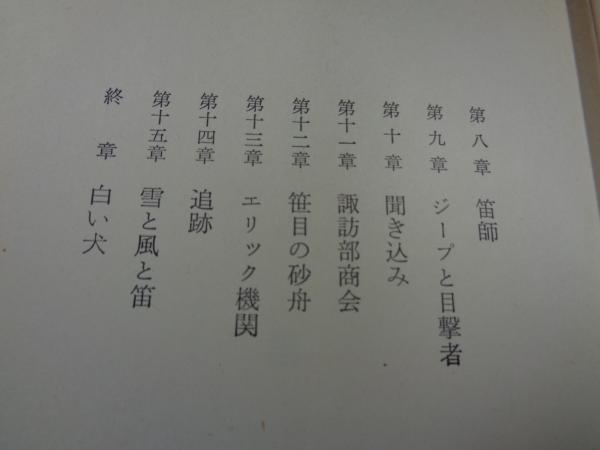 第八章 笛師
第九章 ジープと目撃者
第十章 聞き込み
第十一章 諏訪部商会
第十二章 笹目の砂舟
第十三章 エリック機関
第十四章 追跡
第十五章 雪と風と笛
終章 白い犬